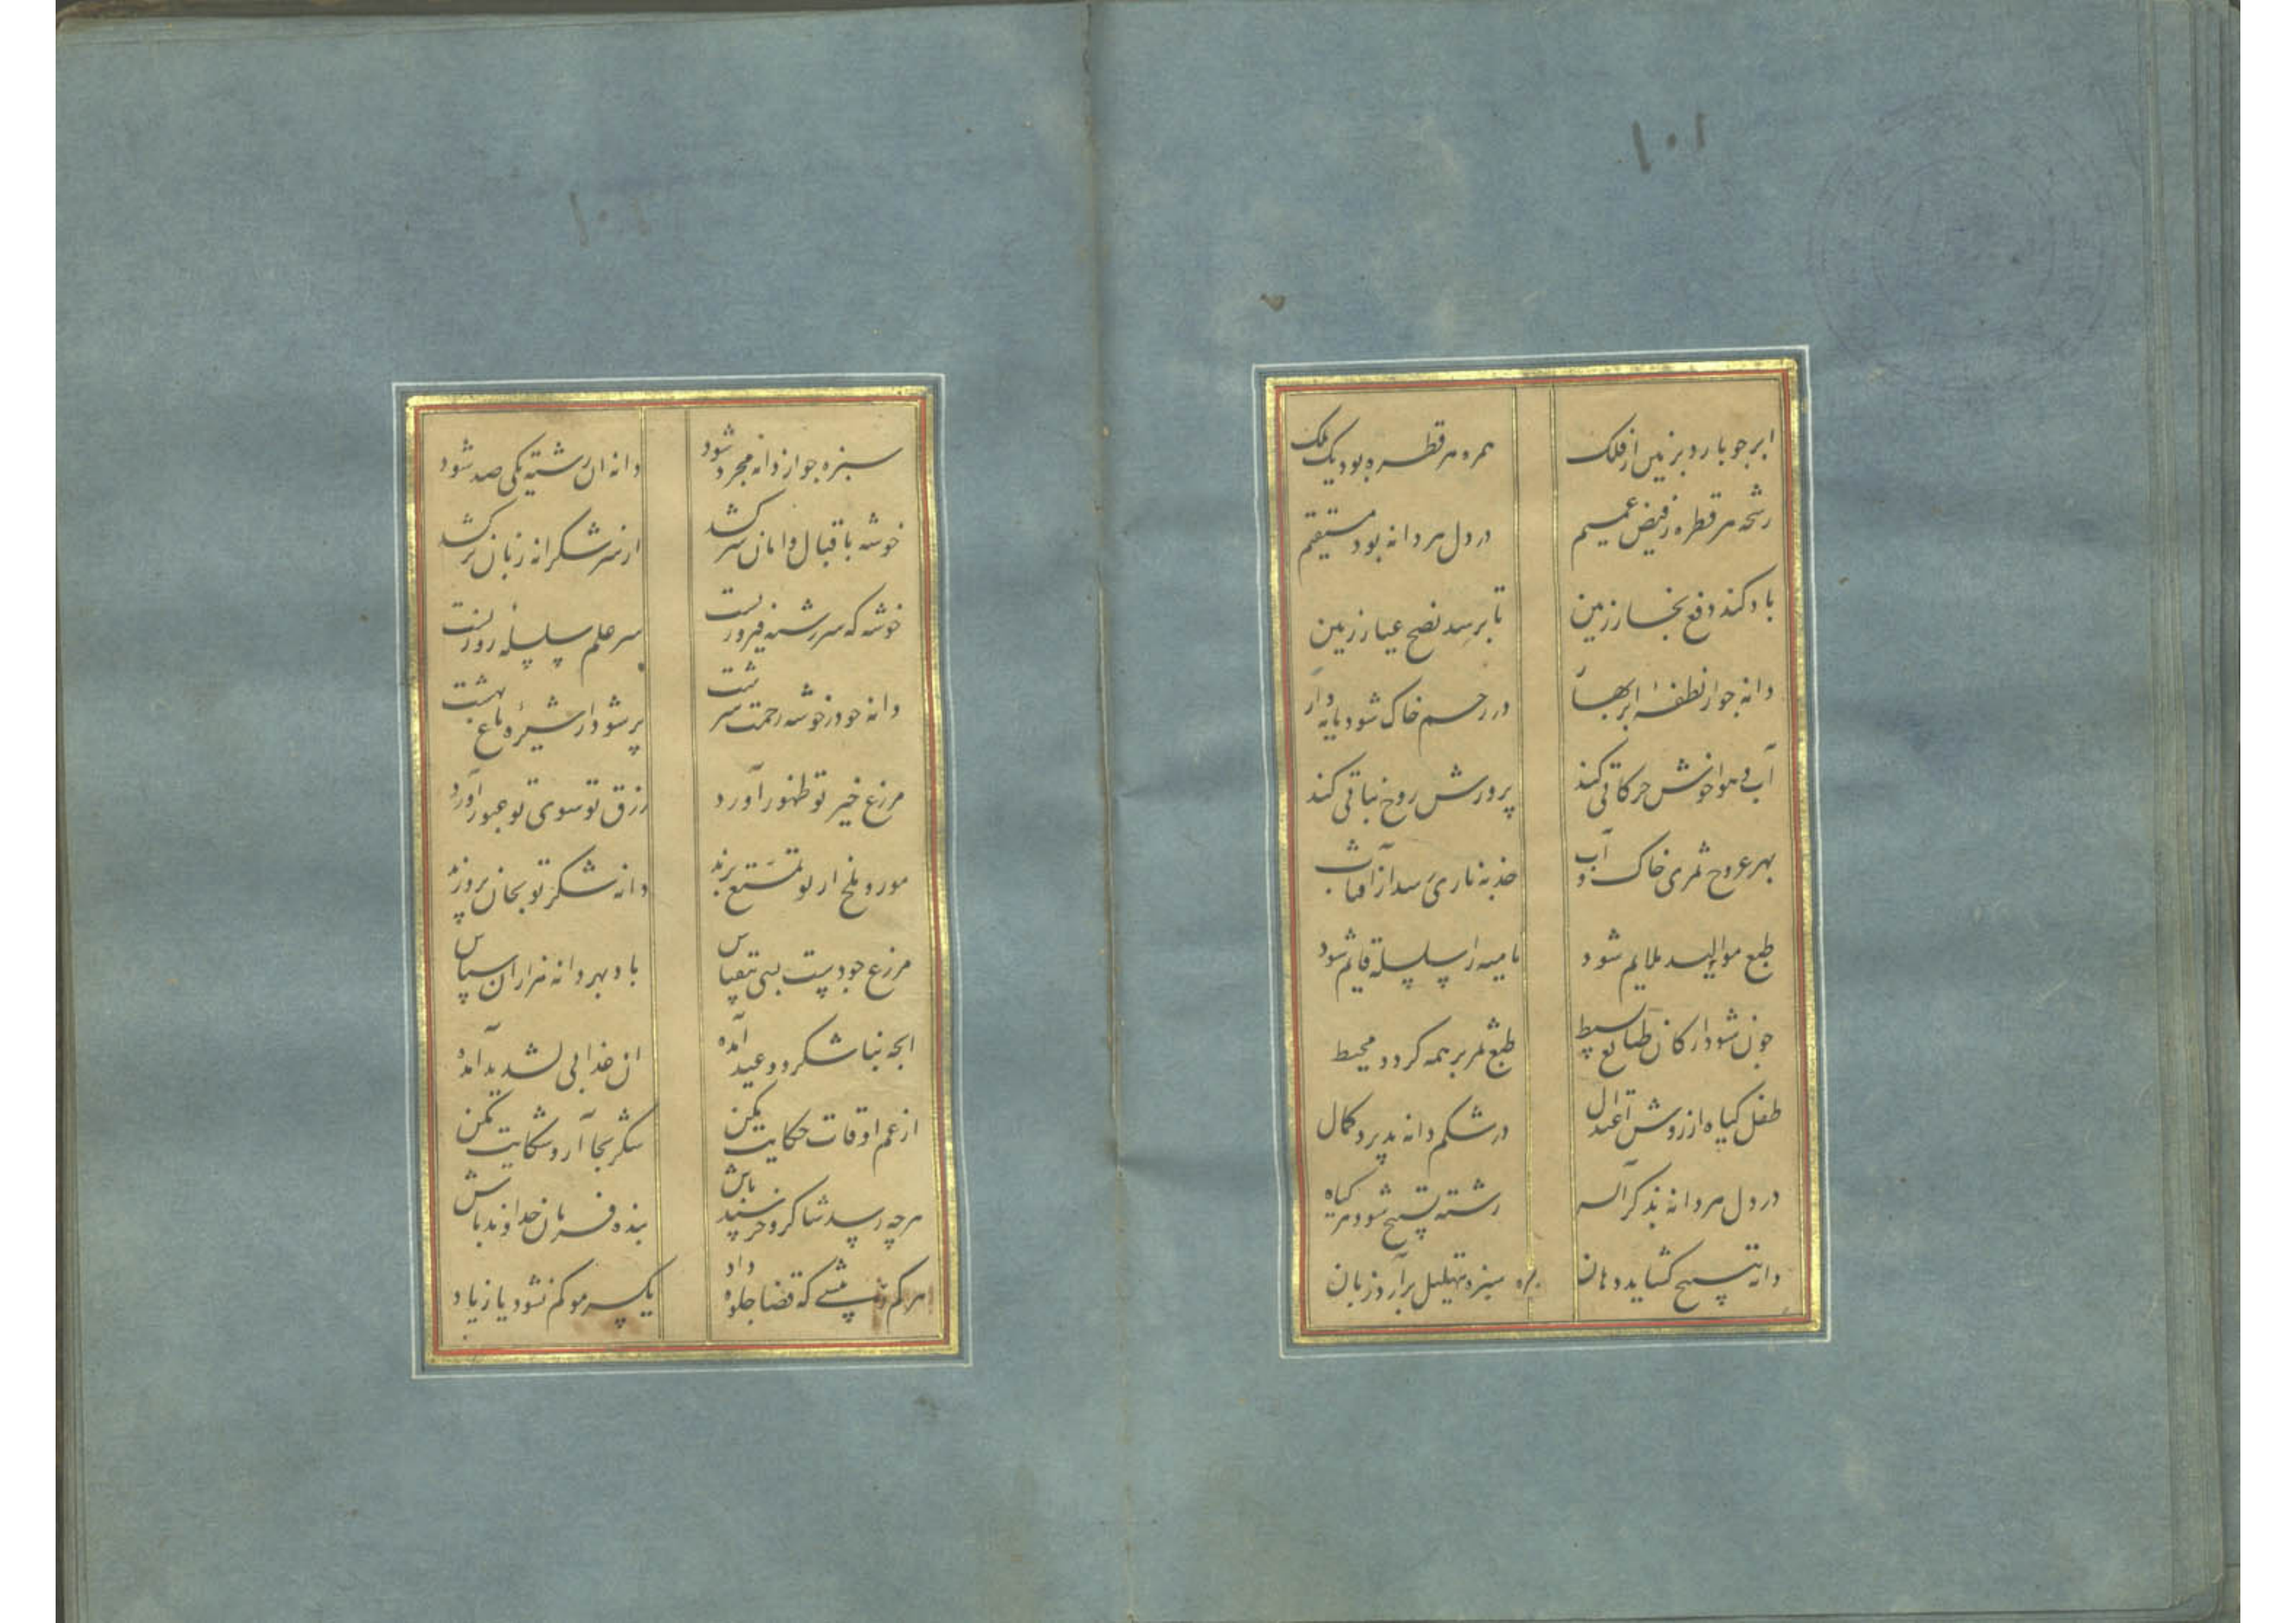 ۱۰۱
ابر جو بارد بزمین از فلک همره هر قطره بود یک ملک
رشحه هر قطره ز فیض عمیم در دل هر دانه بود مستقیم
باد کند دفع بخار زمین تا برسد نضج عیار زمین
دانه جو از نطفهٔ ابر بهار در رحم خاک شود مایه دار
آب و هوا خوش حرکاتی کند پرورش روح نباتی کند
بهر عروج ثمری خاک و آب جذبه ناری رسد از آفتاب
طبع موالید ملایم شود نامیه را سلسله قایم شود
جون شود ارکان طبایع بسیط طبع ثمر بر همه کردد محیط
طفل کیاه از روش اعتدال در شکم دانه پذیرد کمال
در دل هر دانه بذکر آله رشته تسبیح شود هر کیاه
دانه تسبیح کشاید دهان سبزه تهلیل برآرد زبان
۱۰۱
سبزه جو از دانه مجرد شود دانه ان رشته یکی صد شود
خوشه باقبال و امان سر کشد از سر شکرانه زبان بر کشد
خوشه که سر رشته فیروزیست سر علم سلسلهٔ روزیست
دانه جو در خوشه رحمت سرشت پر شود از شیرهٔ باغ بهشت
مزرع خیر تو ظهور آورد رزق تو سوی تو عبور آورد
مور و ملخ از تو تمتع برند دانه شکر تو بجان پرورند
مزرع جودیست بسی بیقیاس باد بهر دانه هزاران سپاس
انجه بنا شکر و وعید آمده ان عذابی لشدید آمده
از غم اوقات حکایت مکن شکر بجا آر و شکایت مکن
هرچه رسد شاکر و خرسند باش بنده فرمان خداوند باش
هر کم و بیشی که قضا جلوه داد یکسر مو کم نشود یا زیاد